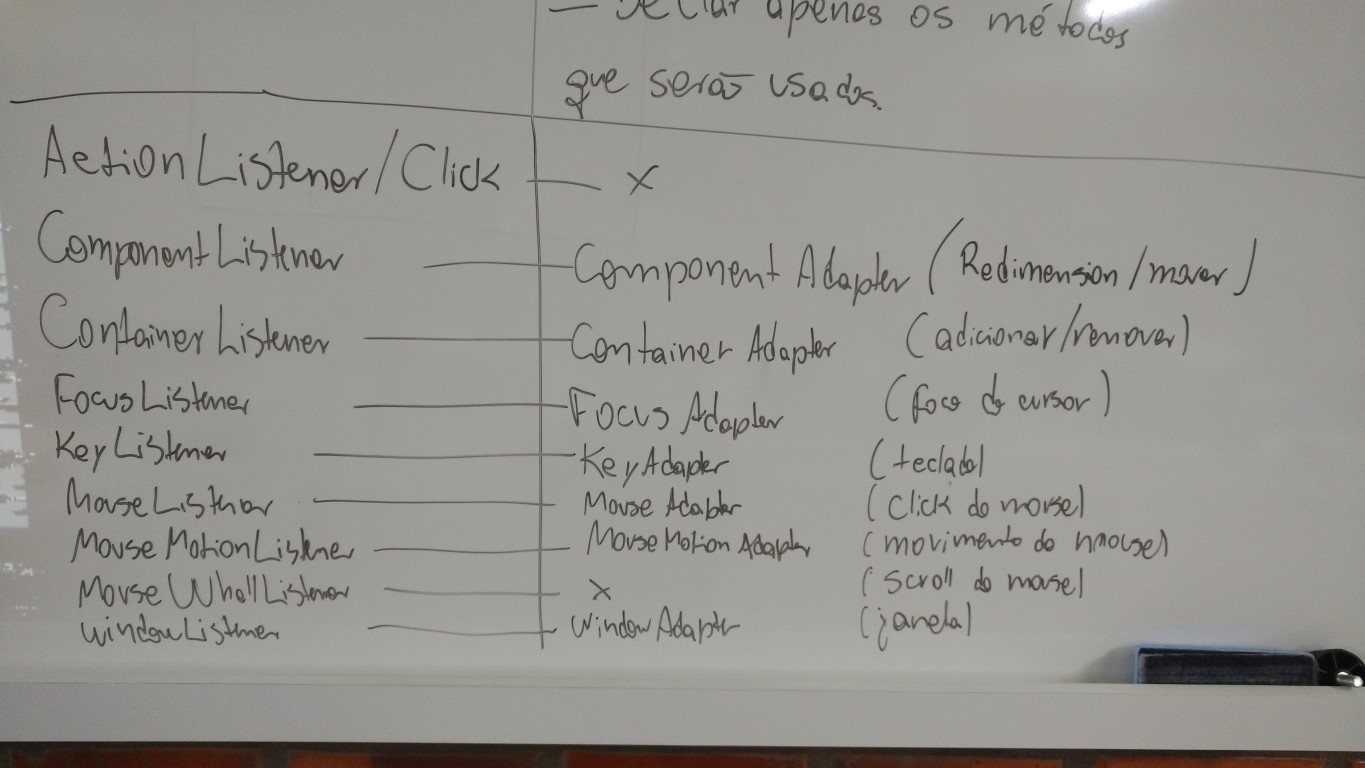 — apenas os métodos
que serão usados.
ActionListener/Click — x
ComponentListener — Component Adapter (Redimension/mover)
ContainerListener — Container Adapter (adicionar/remover)
FocusListener — Focus Adapter (foco do cursor)
KeyListener — KeyAdapter (teclado)
MouseListener — Mouse Adapter (Click do mouse)
MouseMotionListener — MouseMotion Adapter (movimento do mouse)
MouseWhellListener — x (scroll do mouse)
WindowListener — WindowAdapter (janela)